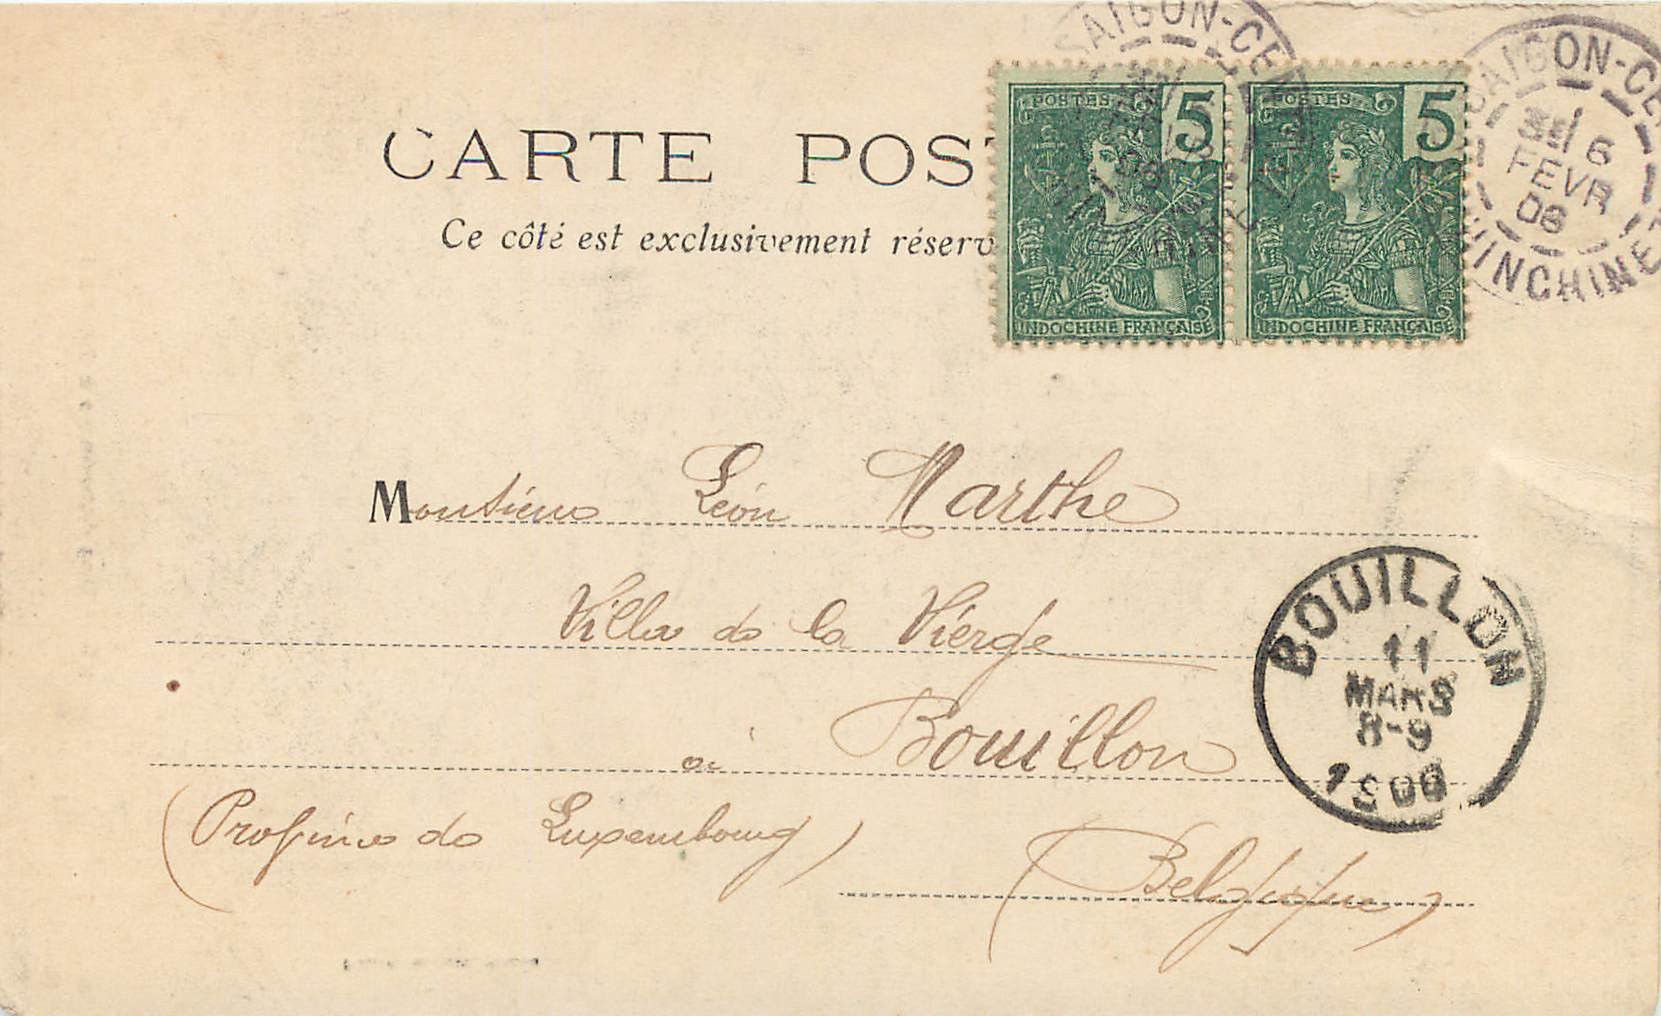 SAIGON-CEN
SAIGON-CE
3E 6
FEVR
06
CHINCHINE
POSTES 5 POSTES 5
INDOCHINE FRANÇAISE INDOCHINE FRANÇAISE
CARTE POST
Ce côté est exclusivement réserv
Monsieur Léon Marthe
Villa de la Vierge
à Bouillon
(Province de Luxembourg)
(Belgique)
BOUILLON
11
MARS
8-9
1906